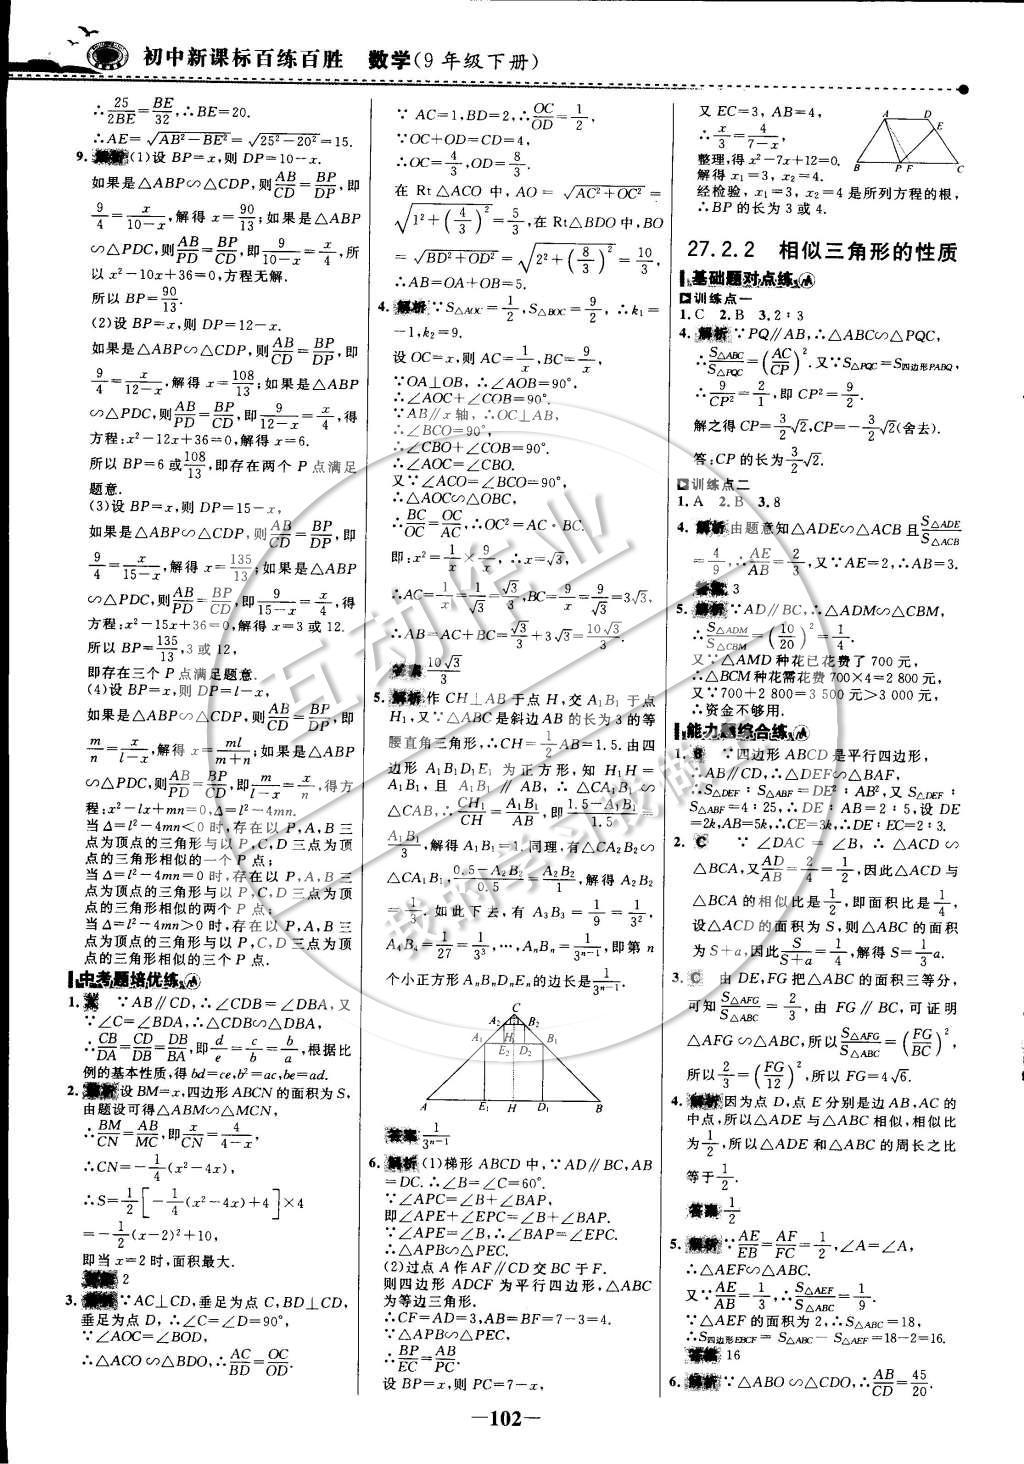 初中新课标百练百胜 数学(9年级下册)
∴25/2BE=BE/32,∴BE=20.
∴AE=√(AB²-BE²)=√(25²-20²)=15.
9. 解析(1)设BP=x,则DP=10-x.
如果是△ABP∽△CDP,则AB/CD=BP/DP,即
9/4=x/(10-x),解得x=90/13;如果是△ABP
∽△PDC,则AB/PD=BP/CD,即9/(10-x)=x/4,所
以x²-10x+36=0,方程无解.
所以BP=90/13.
(2)设BP=x,则DP=12-x.
如果是△ABP∽△CDP,则AB/CD=BP/DP,即
9/4=x/(12-x),解得x=108/13;如果是△ABP
∽△PDC,则AB/PD=BP/CD,即9/(12-x)=x/4,得
方程:x²-12x+36=0,解得x=6.
所以BP=6或108/13,即存在两个P点满足
题意.
(3)设BP=x,则DP=15-x,
如果是△ABP∽△CDP,则AB/CD=BP/DP,即
9/4=x/(15-x),解得x=135/13;如果是△ABP
∽△PDC,则AB/PD=BP/CD,即9/(15-x)=x/4,得
方程:x²-15x+36=0,解得x=3或12.
所以BP=135/13,3或12,
即存在三个P点满足题意.
(4)设BP=x,则DP=l-x,
如果是△ABP∽△CDP,则AB/CD=BP/DP,即
m/n=x/(l-x),解得x=ml/(m+n);如果是△ABP
∽△PDC,则AB/PD=BP/CD,即m/(l-x)=x/n,得方
程:x²-lx+mn=0,Δ=l²-4mn.
当Δ=l²-4mn<0时,存在以P,A,B三
点为顶点的三角形与以P,C,D三点为顶
点的三角形相似的一个P点;
当Δ=l²-4mn=0时,存在以P,A,B三
点为顶点的三角形与以P,C,D三点为顶
点的三角形相似的两个P点;
当Δ=l²-4mn>0时,存在以P,A,B三
点为顶点的三角形与以P,C,D三点为顶
点的三角形相似的三个P点.
中考题培优练
1. A ∵AB∥CD,∴∠CDB=∠DBA,又
∵∠C=∠BDA,∴△CDB∽△DBA,
∴CB/DA=CD/DB=DB/BA,即d/e=c/b=b/a,根据比
例的基本性质,得bd=ce,b²=ac,be=ad.
2. 解析 设BM=x,四边形ABCN的面积为S,
由题设可得△ABM∽△MCN,
∴BM/CN=AB/MC,即x/CN=4/(4-x),
∴CN=-1/4(x²-4x),
∴S=1/2[-1/4(x²-4x)+4]×4
=-1/2(x-2)²+10,
即当x=2时,面积最大.
答案 2
3. 解析∵AC⊥CD,垂足为点C,BD⊥CD,
垂足为点D,∴∠C=∠D=90°,
∵∠AOC=∠BOD,
∴△ACO∽△BDO,∴AC/BD=OC/OD.
∵AC=1,BD=2,∴OC/OD=1/2,
∵OC+OD=CD=4,
∴OC=4/3,OD=8/3.
在Rt△ACO中,AO=√(AC²+OC²)=
√(1²+(4/3)²)=5/3,在Rt△BDO中,BO
=√(BD²+OD²)=√(2²+(8/3)²)=10/3,
∴AB=OA+OB=5.
4. 解析∵S△AOC=1/2,S△BOC=9/2,∴k₁=
-1,k₂=9.
设OC=x,则AC=1/x,BC=9/x,
∵OA⊥OB,∴∠AOB=90°.
∴∠AOC+∠COB=90°.
∵AB∥x轴,∴OC⊥AB,
∴∠BCO=90°,
∴∠CBO+∠COB=90°.
∴∠AOC=∠CBO.
又∵∠ACO=∠BCO=90°,
∴△AOC∽△OBC,
∴BC/OC=OC/AC,∴OC²=AC·BC.
即:x²=1/x×9/x,∴x=√3,
∴AC=1/x=1/√3=√3/3,BC=9/x=9/√3=3√3,
∴AB=AC+BC=√3/3+3√3=10√3/3.
答案 10√3/3
5. 解析 作CH⊥AB于点H,交A₁B₁于点
H₁,又∵△ABC是斜边AB的长为3的等
腰直角三角形,∴CH=1/2AB=1.5.由四
边形A₁B₁D₁E₁为正方形,知H₁H=
A₁B₁,且A₁B₁∥AB,∴△CA₁B₁∽
△CAB,∴CH₁/CH=A₁B₁/AB,即(1.5-A₁B₁)/1.5=
A₁B₁/3,解得A₁B₁=1.同理,有△CA₂B₂∽
△CA₁B₁,(0.5-A₂B₂)/0.5=A₂B₂/1,解得A₂B₂
=1/3.如此下去,有A₃B₃=1/9=1/3²,
A₄B₄=1/27=1/3³,…,AₙBₙ=1/3ⁿ⁻¹,即第n
个小正方形AₙBₙDₙEₙ的边长是1/3ⁿ⁻¹.
C
A₂ B₂
A₁ H₁ B₁
E₂ D₂
A E₁ H D₁ B
答案 1/3ⁿ⁻¹
6. 解析(1)梯形ABCD中,∵AD∥BC,AB
=DC.∴∠B=∠C=60°.
∵∠APC=∠B+∠BAP.
即∠APE+∠EPC=∠B+∠BAP.
∵∠APE=∠B,∴∠BAP=∠EPC.
∴△APB∽△PEC.
(2)过点A作AF∥CD交BC于F.
则四边形ADCF为平行四边形,△ABC
为等边三角形.
∴CF=AD=3,AB=BF=7-3=4.
∵△APB∽△PEC,
∴BP/EC=AB/PC.
设BP=x,则PC=7-x,
又EC=3,AB=4,
∴x/3=4/(7-x),
整理,得x²-7x+12=0.
解得x₁=3,x₂=4.
经检验,x₁=3,x₂=4是所列方程的根,
∴BP的长为3或4.
A D
E
B P F C
27.2.2 相似三角形的性质
基础题对点练
训练点一
1. C 2. B 3. 2∶3
4. 解析∵PQ∥AB,∴△ABC∽△PQC,
∴S△ABC/S△PQC=(AC/CP)².又∵S△PQC=S四边形PABQ,
∴9/CP²=2/1,即CP²=9/2.
解之得CP=3/2√2,CP=-3/2√2(舍去).
答:CP的长为3/2√2.
训练点二
1. A 2. B 3. 8
4. 解析 由题意知△ADE∽△ACB且S△ADE/S△ACB
=4/9,∴AE/AB=2/3,又∵AE=2,∴AB=3.
答案 3
5. 解析∵AD∥BC,∴△ADM∽△CBM,
∴S△ADM/S△CBM=(10/20)²=1/4.
又∵△AMD种花已花费了700元,
∴△BCM种花需花费700×4=2 800元,
又∵700+2 800=3 500元>3 000元,
∴资金不够用.
能力题综合练
1. B ∵四边形ABCD是平行四边形,
∴AB∥CD,∴△DEF∽△BAF,
∴S△DEF∶S△ABF=DE²∶AB²,又S△DEF∶
S△ABF=4∶25,∴DE∶AB=2∶5,设DE
=2k,AB=5k,∴CE=3k,∴DE∶EC=2∶3.
2. C ∵∠DAC=∠B,∴△ACD∽
△BCA,又AD/AB=2/4=1/2,因此△ACD与
△BCA的相似比是1/2,即面积比是1/4,
设△ACD的面积为S,则△ABC的面积
为S+a,因此S/(S+a)=1/4,解得S=1/3a.
3. C 由DE,FG把△ABC的面积三等分,
可知S△AFG/S△ABC=2/3,由FG∥BC,可证明
△AFG∽△ABC,所以S△AFG/S△ABC=(FG/BC)²,
所以2/3=(FG/12)²,所以FG=4√6.
4. 解析 因为点D,点E分别是边AB,AC的
中点,所以△ADE与△ABC相似,相似比
为1/2,所以△ADE和△ABC的周长之比
等于1/2.
答案 1/2
5. 解析∵AE/EB=AF/FC=1/2,∠A=∠A,
∴△AEF∽△ABC.
又∵AE/AB=1/3,∴S△AEF/S△ABC=1/9.
∵△AEF的面积为2,∴S△ABC=18,
∴S四边形EBCF=S△ABC-S△AEF=18-2=16.
答案 16
6. 解析∵△ABO∽△CDO,∴AB/CD=45/20.
—102—
互动作业
我的学习我做主